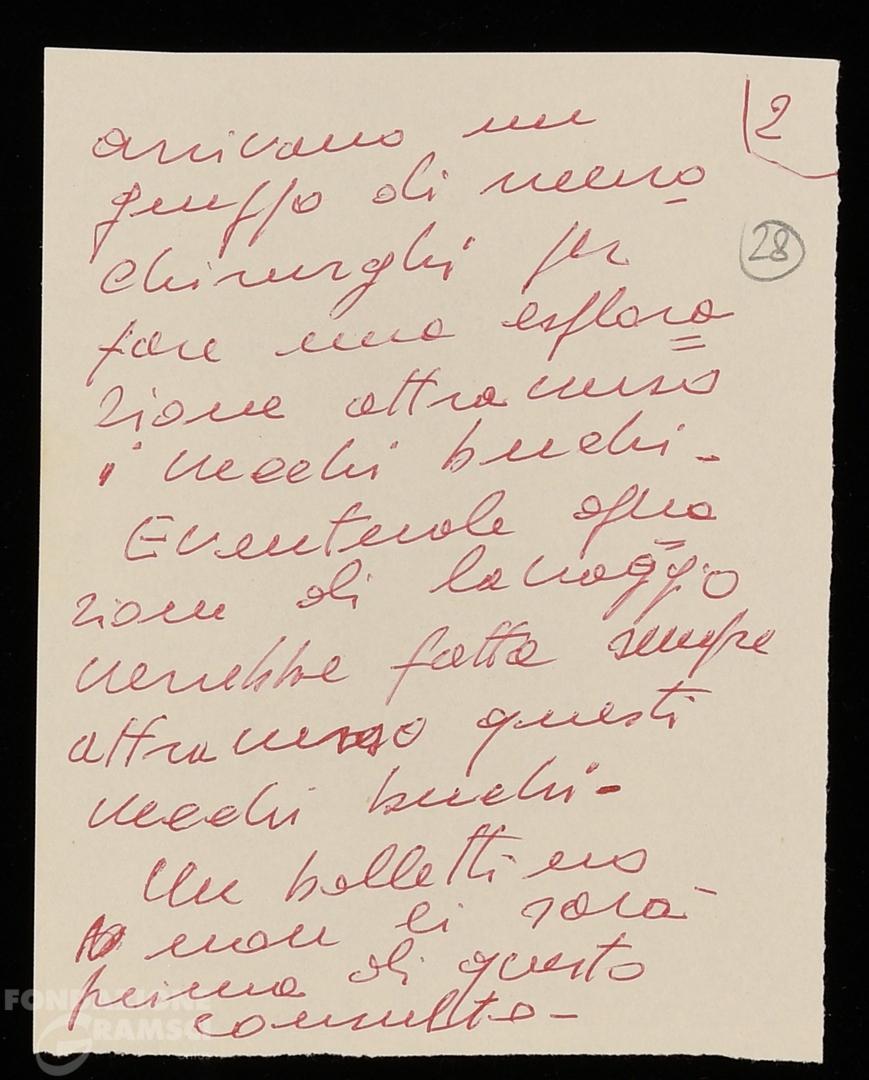 2
arrivano un
gruppo di neuro
28
chirurghi per
fare una esplora
zione attraverso
i vecchi buchi -
Eventuale opera
zione di lavaggio
verrebbe fatta sempre
attraverso questi
vecchi buchi -
Un bollettino
non ci sarà
prima di questo
consulto -
FONDAZIONE
GRAMSCI